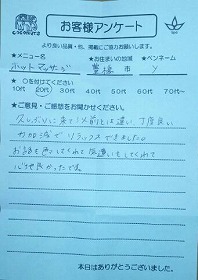 COCONUTS
お客様アンケート
より良い品質・店、掲載にご協力お願いします。
★メニュー名 ★お住まいの地域 ★ペンネーム
ホットマッサージ 豊橋 市 Y
★ ○を付けてください
10代 20代 30代 40代 50代 60代 70代〜
★ご意見・ご感想をお聞かせください。
久しぶりに来て以前とは違い、丁度良い
力加減でリラックスできました。
お話も聞してくれて気遣いもしてくれて
心地良かったです。
本日はありがとうございました。